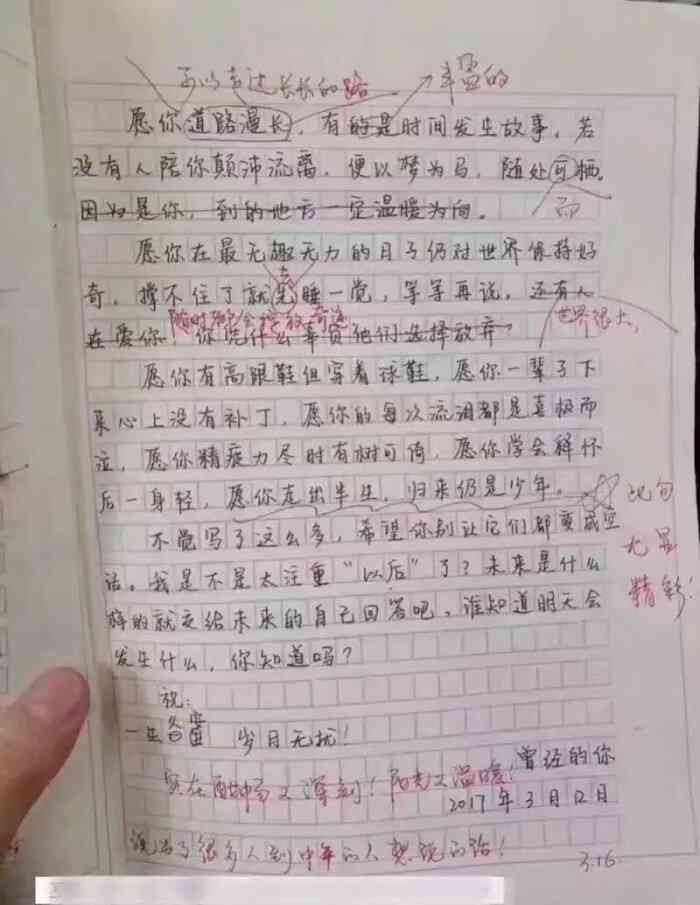 可以走过长长的路 丰盈的
愿你道路漫长,有的是时间发生故事。若
没有人陪你颠沛流离,便以梦为马,随处可栖。
因为是你,到的地方一定温暖为向。
而
愿你在最无趣无力的日子仍对世界保持好
奇,撑不住了就先睡一觉,等等再说。还有人
去
在爱你,你凭什么辜负他们选择放弃?
世界很大,
随时都会
愿你有高跟鞋但穿着球鞋,愿你一辈子下
来心上没有补丁,愿你的每次流泪都是喜极而
泣,愿你精疲力尽时有树可倚,愿你学会释怀
后一身轻,愿你走出半生,归来仍是少年。
此句
尤显
精彩!
不觉写了这么多,希望你别让它们都变成空
话。我是不是太注重“以后”了?未来是什么
样的就交给未来的自己回答吧,谁知道明天会
发生什么,你知道吗?
祝:
一生 岁月无扰!
曾经的你
实在酣畅又深刻!阳光又温暖!
2017年3月12日
说出了很多人到中年的人想说的话!
3.16